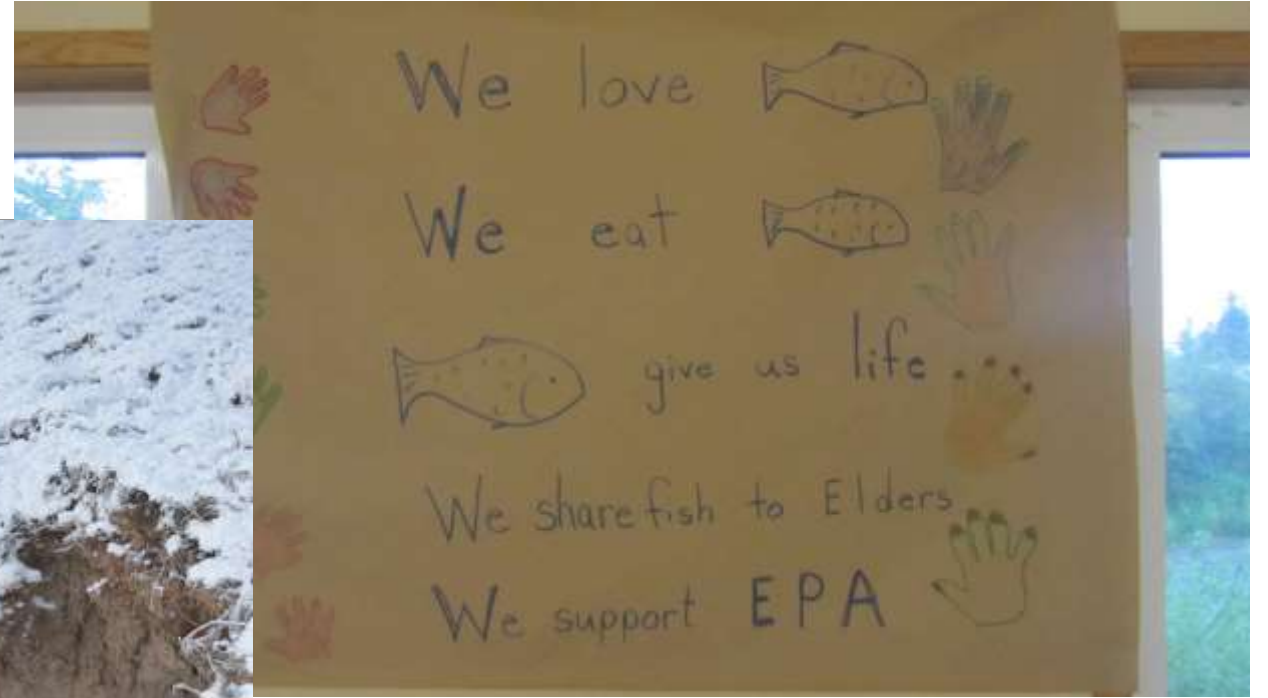 We love
We eat
give us life
We share fish to Elders
We support EPA